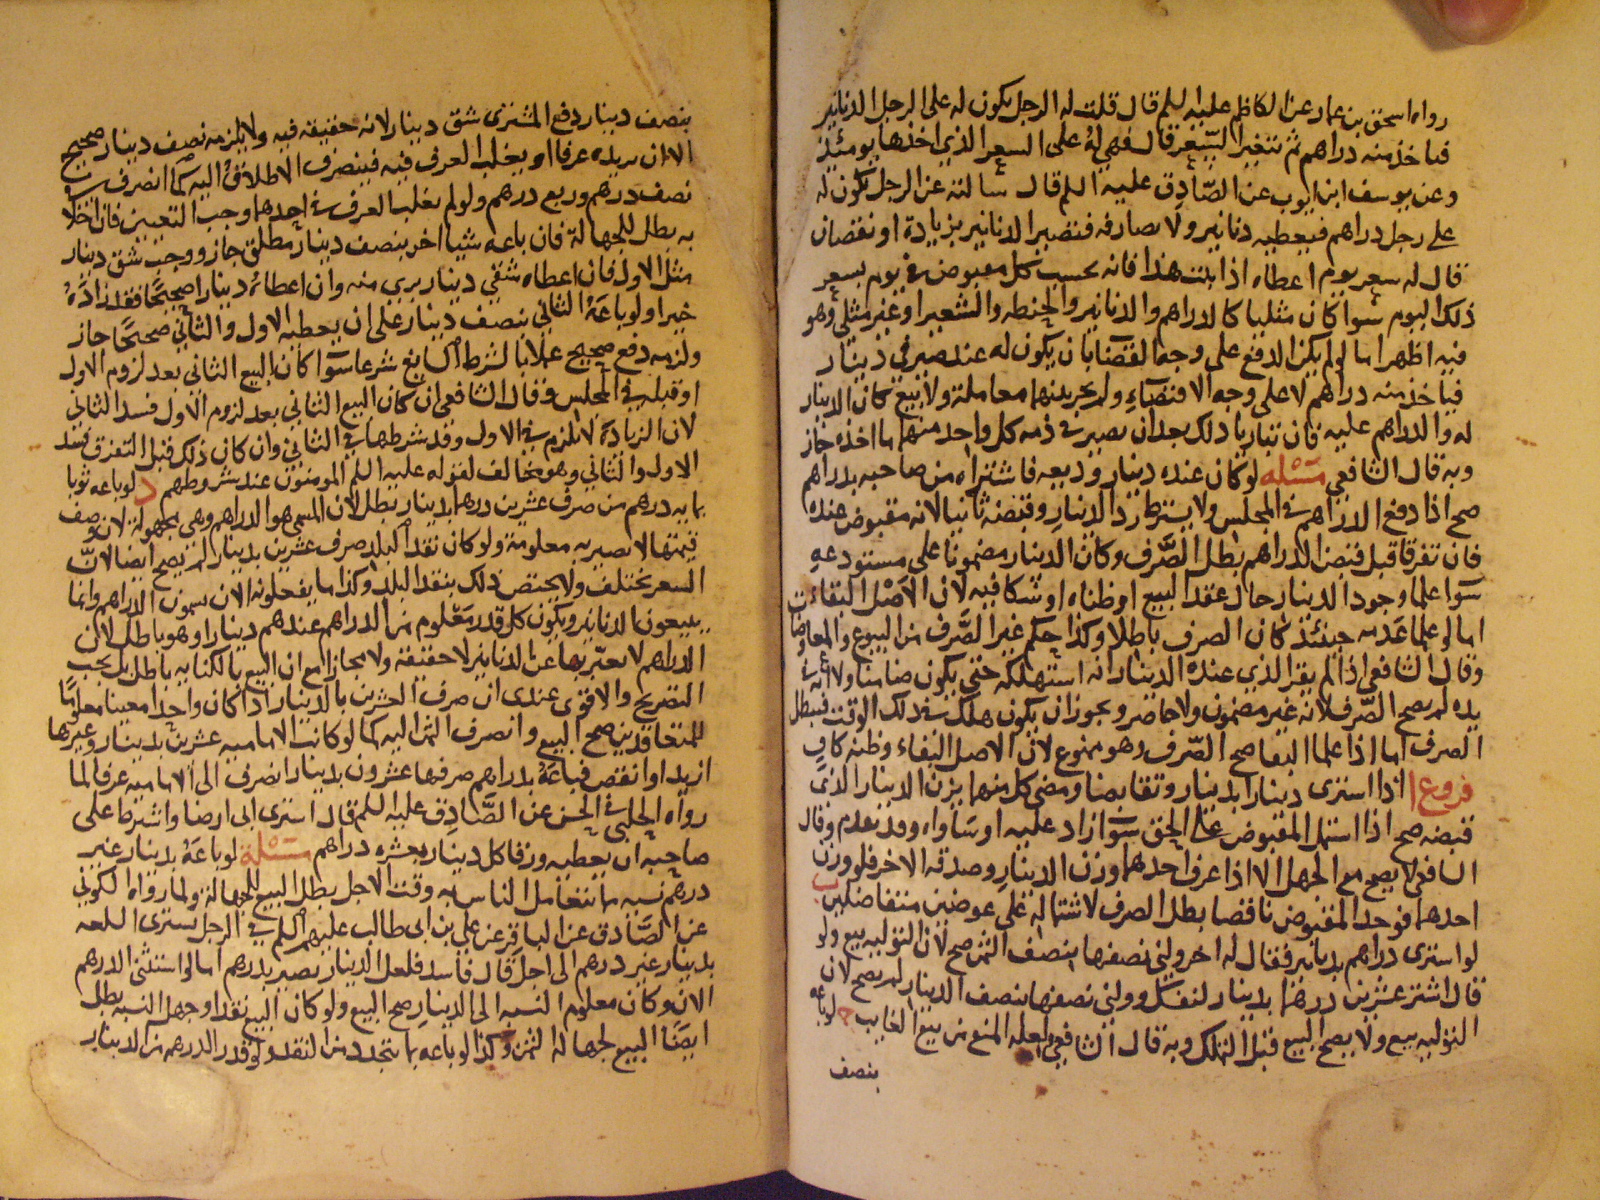 رواه اسحق بن عمار عن الكاظم عليه السلم قال قلت له الرجل يكون له على الرجل الدنانير
فياخذ منه دراهم ثم يتغير السعر قال فهي له على السعر الذي اخذها يومئذ
وعن يوسف ابن ايوب عن الصادق عليه السلم قال سالته عن الرجل يكون له
على رجل دراهم فيعطيه دنانير ولا يصارفه فتصير الدنانير بزيادة او نقصان
قال له سعر يوم اعطاه اذا ثبت هذا فانه يحسب كل مقبوض في يوم بسعر
ذلك اليوم سوا كان مثليا كالدراهم والدنانير والحنطه والشعير او غير مثلي وهو
فيه اظهر اما لو لم يكن الدفع على وجه القضا بان يكون له عند صيرفي دينار
فياخذ منه دراهم لا على وجه الاقتضاء ولم يجر بينهما معاملة ولا بيع كان الدينار
له والدراهم عليه فان تباريا ذلك بعد ان يصير في ذمه كل واحد منهما ما اخذه جاز
وبه قال الشافعي مسئله لو كان عنده دينار وديعه فاشتراه من صاحبه بدراهم
صح اذا دفع الدراهم في المجلس ولا يشترط رد الدينار وقبضه ثانيا لانه مقبوض عنده
فان تفرقا قبل قبض الدراهم بطل الصرف وكان الدينار مضمونا على مستودعه
سوا علما وجود الدينار حال عقد البيع او ظناه او شكا فيه لان الاصل البقاء
اما لو علما عدمه حينئذ كان الصرف باطلا وكذا حكم غير الصرف من البيوع والمعاوضات
وقال الشافعي اذا لم يقر الذي عنده الدينار انه استهلكه حتى يكون ضامنا ولا انه في
يده لم يصح الصرف لانه غير مضمون ولا حاضر ويجوز ان يكون هلك في ذلك الوقت فيبطل
الصرف اما اذا علما البقا صح الصرف وهو ممنوع لان الاصل البقاء وظنه كاف
فروع ا اذا اشترى دينارا بدينار وتقابضا ومضى كل منهما يزن الدينار الذي
قبضه صح اذا اشتمل المقبوض على الحق سوا زاد عليه او ساواه وقد تقدم وقال
الشافعي لا يصح مع الجهل الا اذا عرف احدهما وزن الدينار وصدقه الاخر فلو وزن
احدهما فوجد المقبوض ناقصا بطل الصرف لاشتماله على عوضين متفاضلين ب
لو اشترى دراهم بدنانير فقال له اخر ولني نصفها بنصف الثمن صح لان التوليه بيع ولو
قال اشتر عشرين درهما بدينار لنفسك وولني نصفها بنصف الدينار لم يصح لان
التوليه بيع ولا يصح البيع قبل التملك وبه قال الشافعي ولعله المنع من بيع الغايب ج لو باعه
بنصف
بنصف دينار دفع المشتري شق دينار لانه حقيقه فيه ولا يلزمه نصف دينار صحيح
الا ان يريده عرفا او يغلب العرف فيه فينصرف الاطلاق اليه كما انصرف في
نصف درهم وربع درهم ولو لم يغلب العرف في احدهما وجب التعيين فان اخلا
به بطل للجهالة فان باعه شيا اخر بنصف دينار مطلق جاز ووجب شق دينار
مثل الاول فان اعطاه شقي دينار بري منه وان اعطاه دينارا صحيحا فقد زاده
خيرا ولو باعه الثاني بنصف دينار على ان يعطيه الاول والثاني صحيحا جاز
ولزمه دفع صحيح عملا بالشرط السايغ شرعا سوا كان البيع الثاني بعد لزوم الاول
او قبله في المجلس وقال الشافعي ان كان البيع الثاني بعد لزوم الاول فسد الثاني
لان الزيادة لا تلزم في الاول وقد شرطها في الثاني وان كان ذلك قبل التفرق فسد
الاول والثاني وهو مخالف لقوله عليه السلم المومنون عند شروطهم د لو باعه ثوبا
بمايه درهم من صرف عشرين درهما بدينار بطل لان المسمى هو الدراهم وهي مجهولة لان وصف
قيمتها لا تصير به معلومة ولو كان نقد البلد صرف عشرين بدينار لم يصح ايضا لان
السعر يختلف ولا يختص ذلك بنقد البلد وكذا ما يفعلونه الان يسمون الدراهم وانما
يبيعون بالدنانير ويكون كل قدر معلوم من الدراهم عندهم دينارا وهو باطل لان
الدراهم لا يعبر بها عن الدنانير لا حقيقة ولا مجازا مع ان البيع بالكنايه باطل بل يجب
التصريح والاقوى عندي ان صرف العشرين بالدينار اذا كان واحدا معينا معلوما
للمتعاقدين صح البيع وانصرف الثمن اليه كما لو كانت الاماميه عشرين بدينار وغيرها
ازيد او انقص فباعه بدراهم صرفها عشرون بدينار انصرف الى الاماميه عرفا لما
رواه الحلبي في الحسن عن الصادق عليه السلم قال اشترى ابى ارضا واشترط على
صاحبه ان يعطيه ورقا كل دينار بعشره دراهم مسئلة لو باعه بدينار غير
درهم نسيه مما يتعامل الناس به وقت الاجل بطل البيع للجهالة ولما رواه السكوني
عن الصادق عن الباقر عن علي بن ابى طالب عليهم السلم في الرجل يشترى السلعه
بدينار غير درهم الى اجل قال فاسد فلعل الدينار يصير بدرهم اما لو استثنى الدرهم
الان وكان معلوم النسبه الى الدينار صح البيع ولو كان البيع نقدا وجهل النسبه بطل
ايضا البيع لجهالة الثمن وكذا لو باعه بما يتجدد من النقد او قدر الدرهم من الدينار